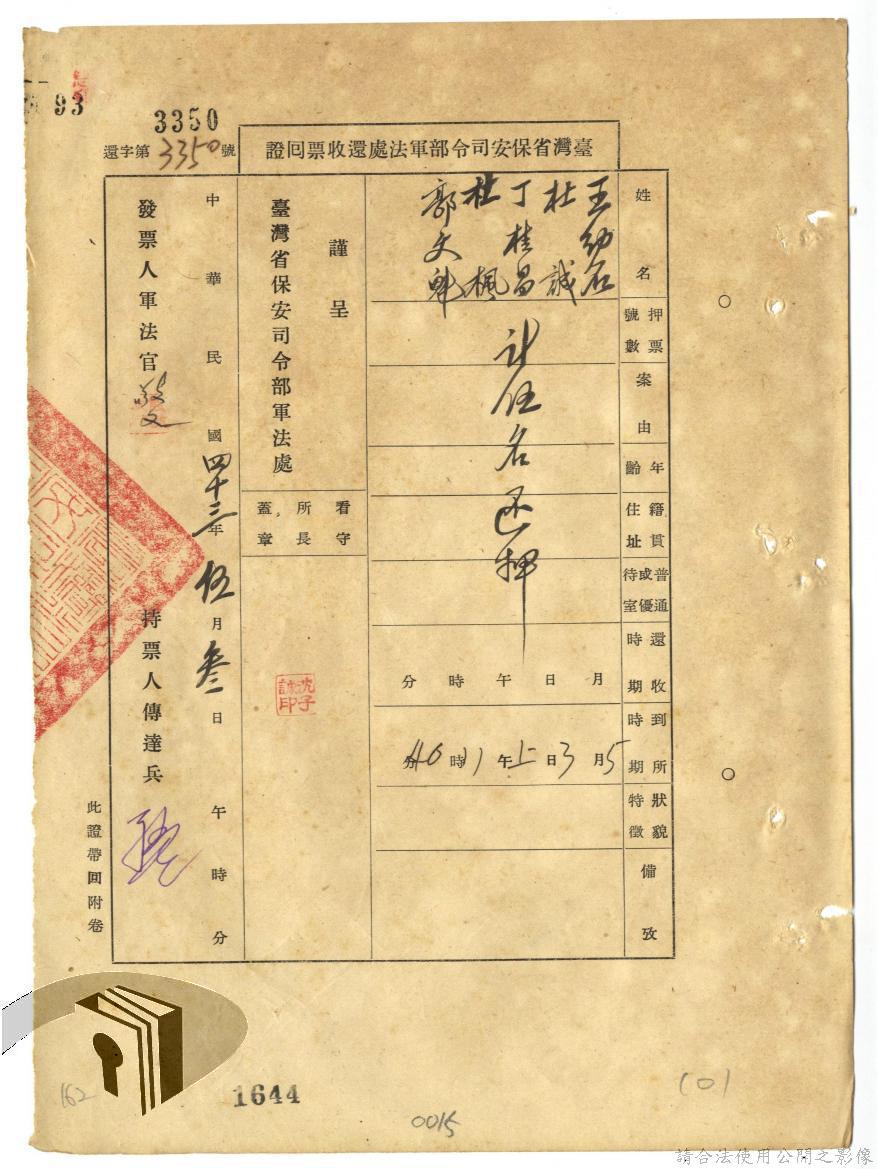 93
3350
還字第3350號
臺灣省保安司令部軍法處還收票回證
姓名
王幼石
杜誠
丁桂昌
杜楓
郭文魁
計伍名還押
押票號數
案由
年齡
籍貫住址
普通或優待室
還收時期
月 日 午 時 分
到所時期
5月3日上午11時46分
狀貌特徵
備攷
謹呈
臺灣省保安司令部軍法處
看守所長蓋章
中華民國四十三年伍月叁日 午 時 分
發票人軍法官
持票人傳達兵
此證帶回附卷
162
1644
0015
(0)
請合法使用公開之影像